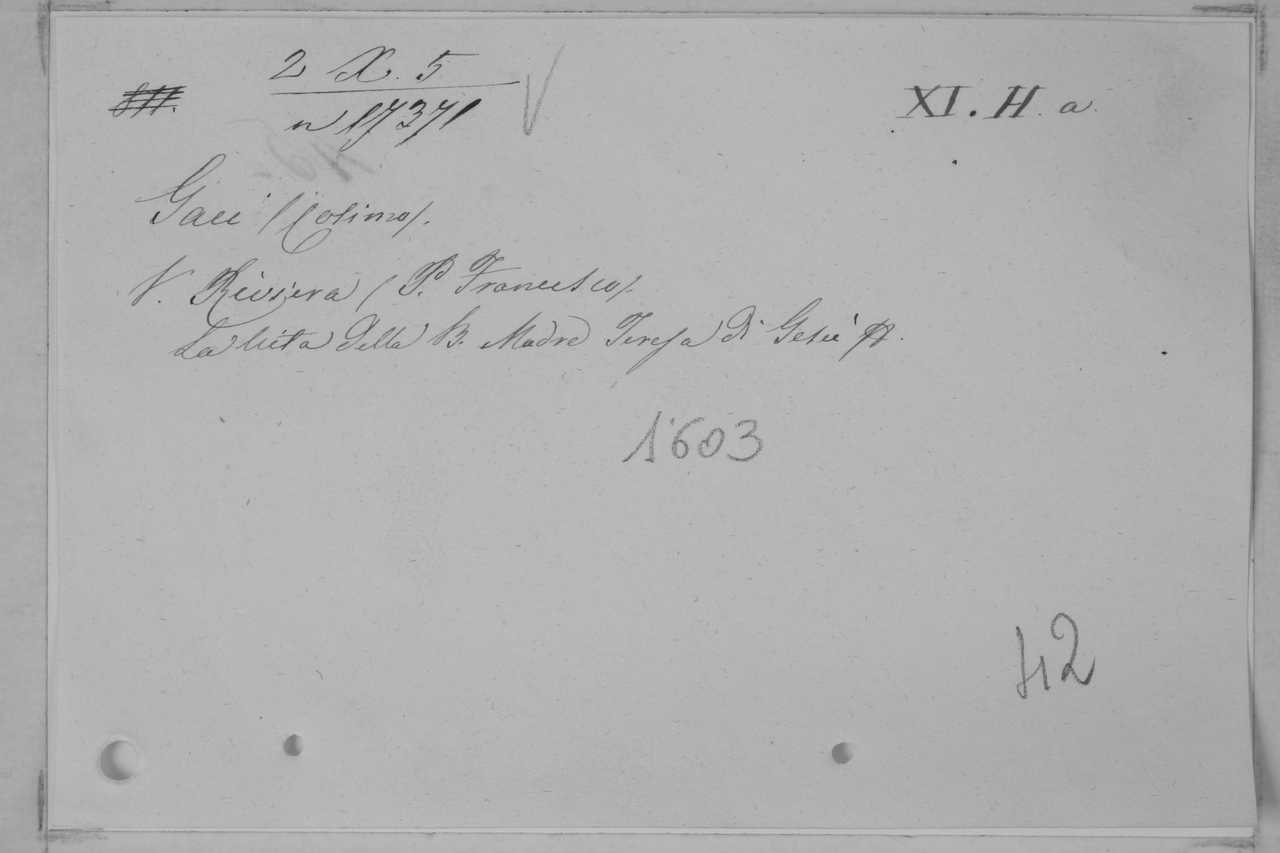 2 X. 5
XI. H. a.
n 17371
Gaci (Cosimo).
V. Riviera (P. Francesco).
La Vita della B. Madre Teresa di Gesù
1603
42